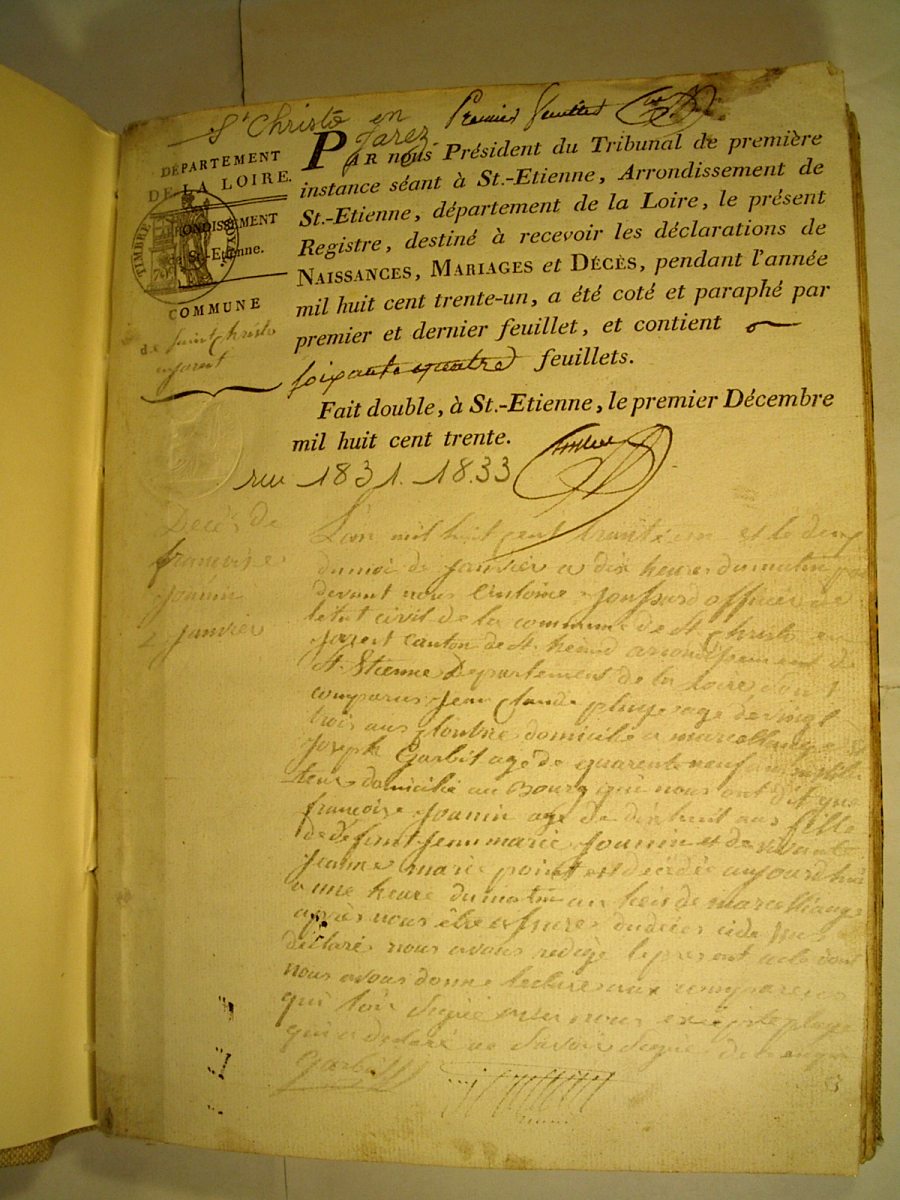 St Christo en Jarez
Premier feuillet
DÉPARTEMENT
DE LA LOIRE.
TIMBRE ROYAL
ARRONDISSEMENT
de St.-Etienne.
COMMUNE
de Saint Christo
en jarest
PAR nous Président du Tribunal de première
instance séant à St.-Etienne, Arrondissement de
St.-Etienne, département de la Loire, le présent
Registre, destiné à recevoir les déclarations de
NAISSANCES, MARIAGES et DÉCÈS, pendant l'année
mil huit cent trente-un, a été coté et paraphé par
premier et dernier feuillet, et contient
soixante quatre feuillets.
Fait double, à St.-Etienne, le premier Décembre
mil huit cent trente.
1831. 1833
Décès de
françoise
Jounin
2 janvier
L'an mil huit cent trente un et le deux
du moi de janvier a dix heures du matin par
devant nous Antoine officier de
letat civil de la commune de St christo en
jarest canton de st heand arondissement de
St Etienne Département de la loire sont
comparus jean claude pluye age de vingt
trois ans domicilié a marcollange et
joseph Garbit agé de quarente neuf ans
domicilié au Bourg qui nous ont dit que
françoise Jounin age de dix huit ans fille
de défunt jean marie Jounin et de vivante
jeanne marie point est décédée aujourd'hui
a une heure du matin au lieu de marcollange
après nous être assurés du décès
déclaré nous avons redigé le present acte dont
nous avons donné lecture aux comparans
qui l'on signé avec nous excepte pluye
qui a déclaré ne savoir signer de ce enquis
Garbit